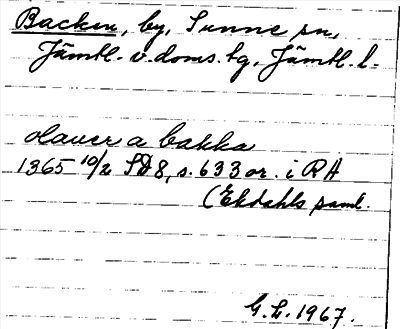 Backen, by, Sunne sn,
Jämtl. v. doms. tg, Jämtl. l.
olauer a bakka
1365 10/2 SD 8, s. 633 or. i RA
(Ekdahls saml.
G.L. 1967.